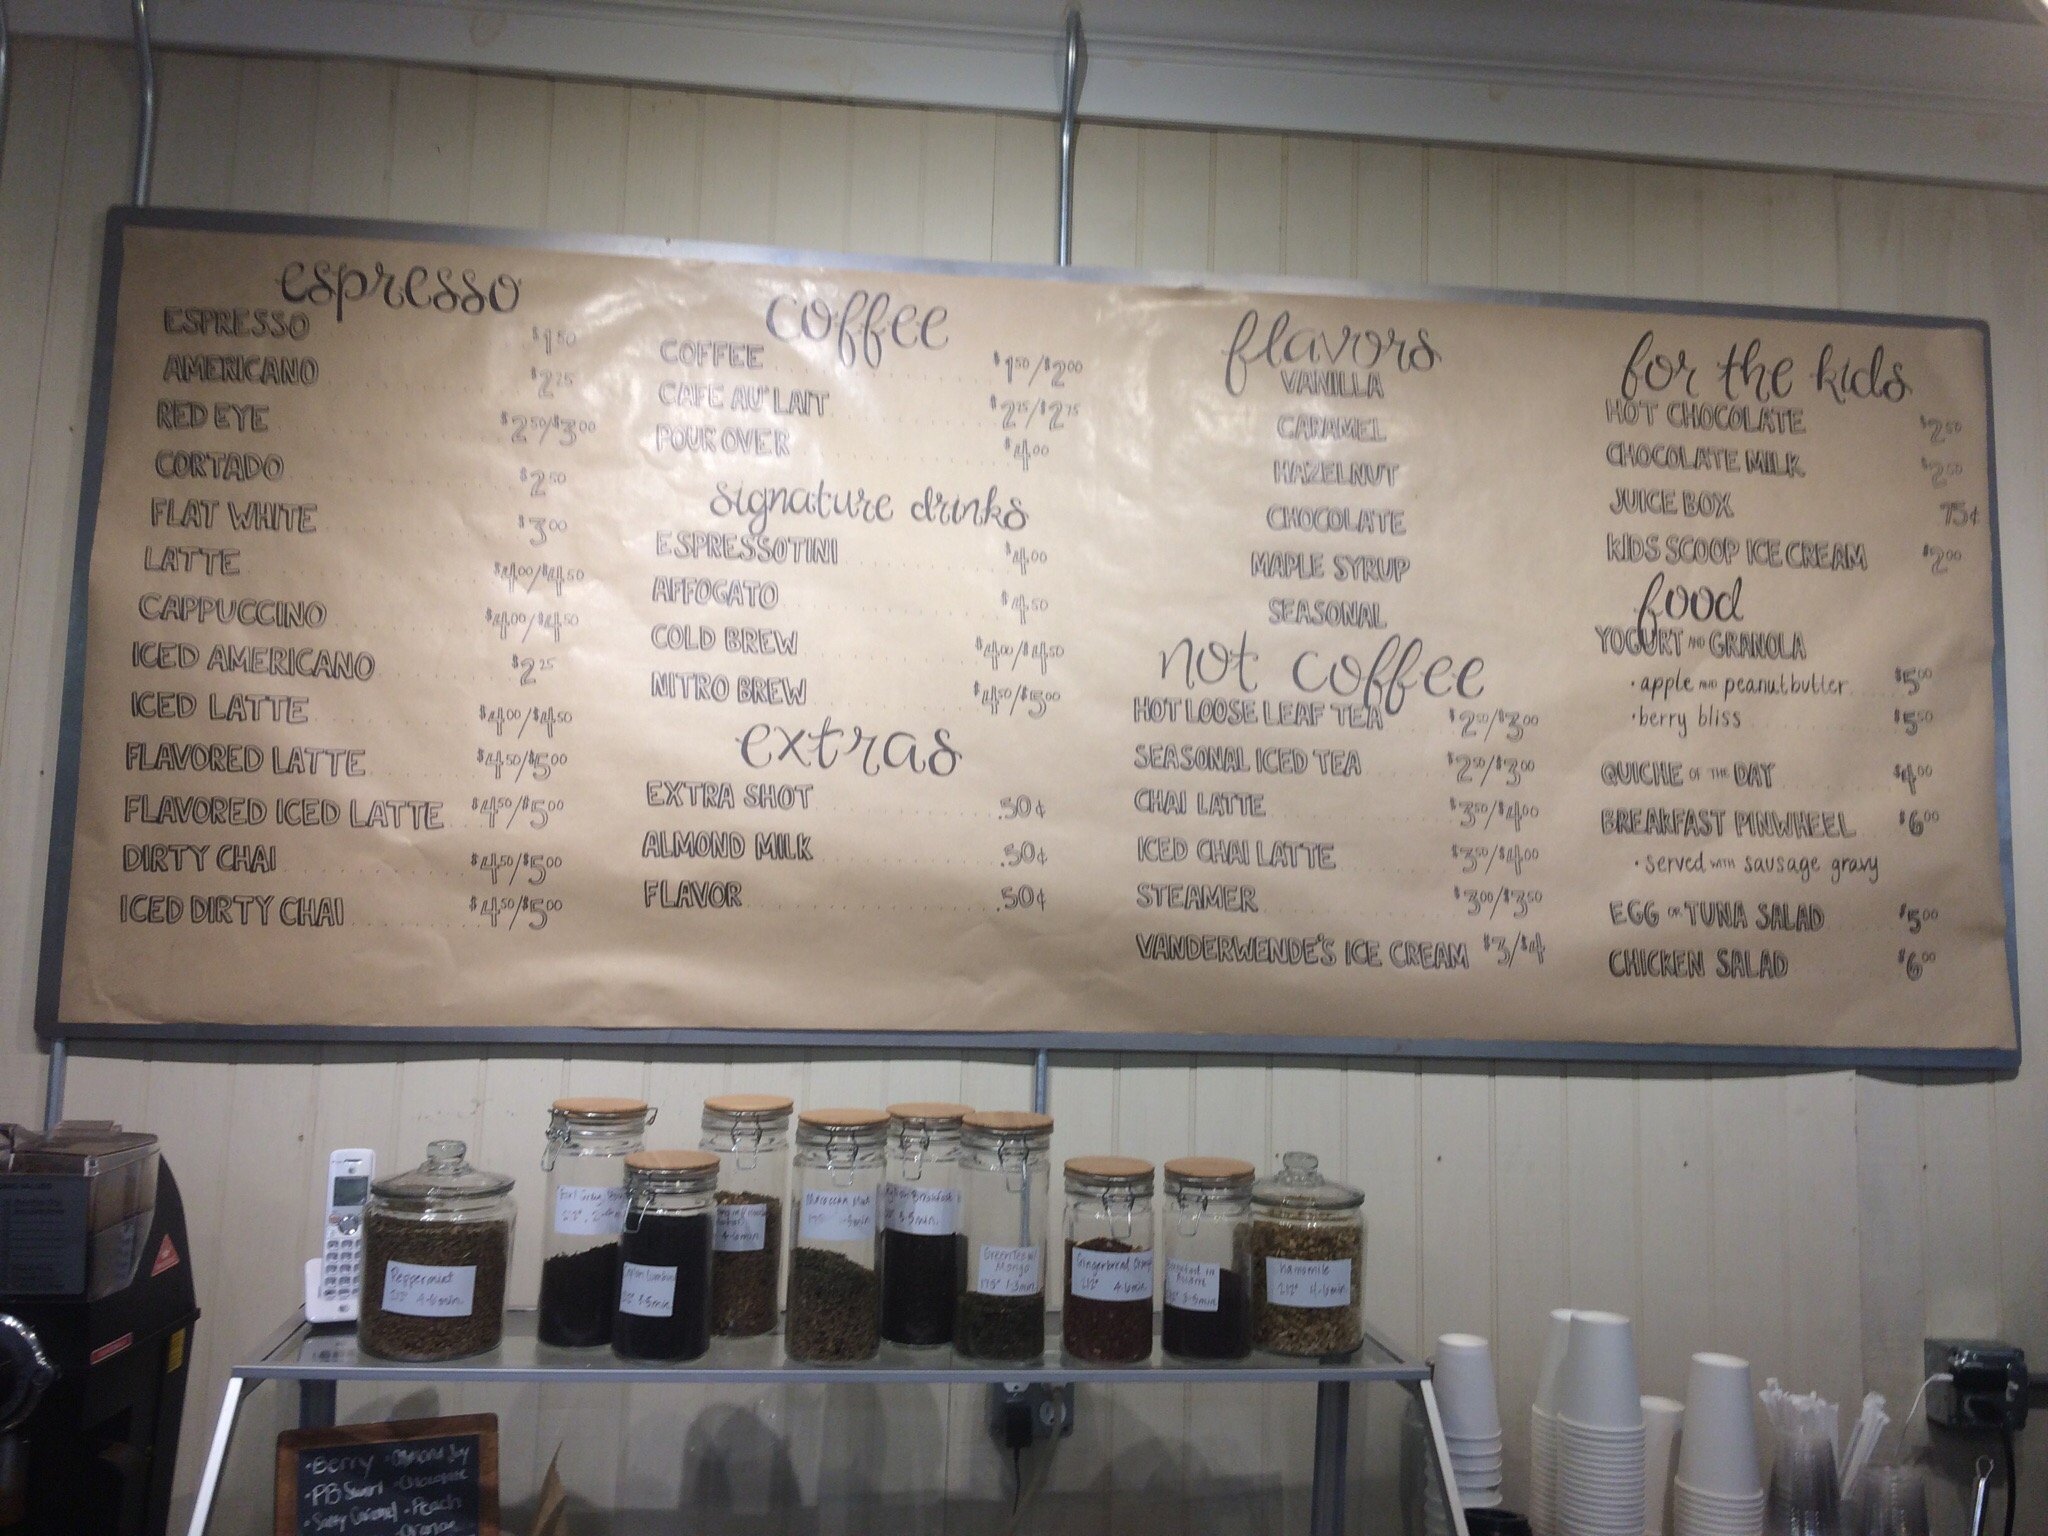 espresso
ESPRESSO $1.50
AMERICANO $2.25
RED EYE $2.50/$3.00
CORTADO $2.50
FLAT WHITE $3.00
LATTE $4.00/$4.50
CAPPUCCINO $4.00/$4.50
ICED AMERICANO $2.25
ICED LATTE $4.00/$4.50
FLAVORED LATTE $4.50/$5.00
FLAVORED ICED LATTE $4.50/$5.00
DIRTY CHAI $4.50/$5.00
ICED DIRTY CHAI $4.50/$5.00
coffee
COFFEE $1.50/$2.00
CAFE AU' LAIT $2.25/$2.75
POUR OVER $4.00
signature drinks
ESPRESSOTINI $4.00
AFFOGATO $4.50
COLD BREW $4.00/$4.50
NITRO BREW $4.50/$5.00
extras
EXTRA SHOT .50¢
ALMOND MILK .50¢
FLAVOR .50¢
flavors
VANILLA
CARAMEL
HAZELNUT
CHOCOLATE
MAPLE SYRUP
SEASONAL
not coffee
HOT LOOSE LEAF TEA $2.50/$3.00
SEASONAL ICED TEA $2.50/$3.00
CHAI LATTE $3.50/$4.00
ICED CHAI LATTE $3.50/$4.00
STEAMER $3.00/$3.50
VANDERWENDE'S ICE CREAM $3/$4
for the kids
HOT CHOCOLATE $2.50
CHOCOLATE MILK $2.50
JUICE BOX 75¢
KIDS SCOOP ICE CREAM $2.00
food
YOGURT AND GRANOLA
• apple AND peanutbutter $5.00
• berry bliss $5.50
QUICHE OF THE DAY $4.00
BREAKFAST PINWHEEL $6.00
• served WITH sausage gravy
EGG OR TUNA SALAD $5.00
CHICKEN SALAD $6.00
Peppermint
212° 4-6min.
Earl Grey
3-5min.
4-6min.
Moroccan Mint
Breakfast
3-5min.
Green Tea w/
Mango
175° 1-3min.
Gingerbread
212° 4-6min.
3-5min.
Chamomile
212° 4-6min.
• Berry • Almond Joy
• PB Swirl • Chocolate
• Salty Caramel • Peach